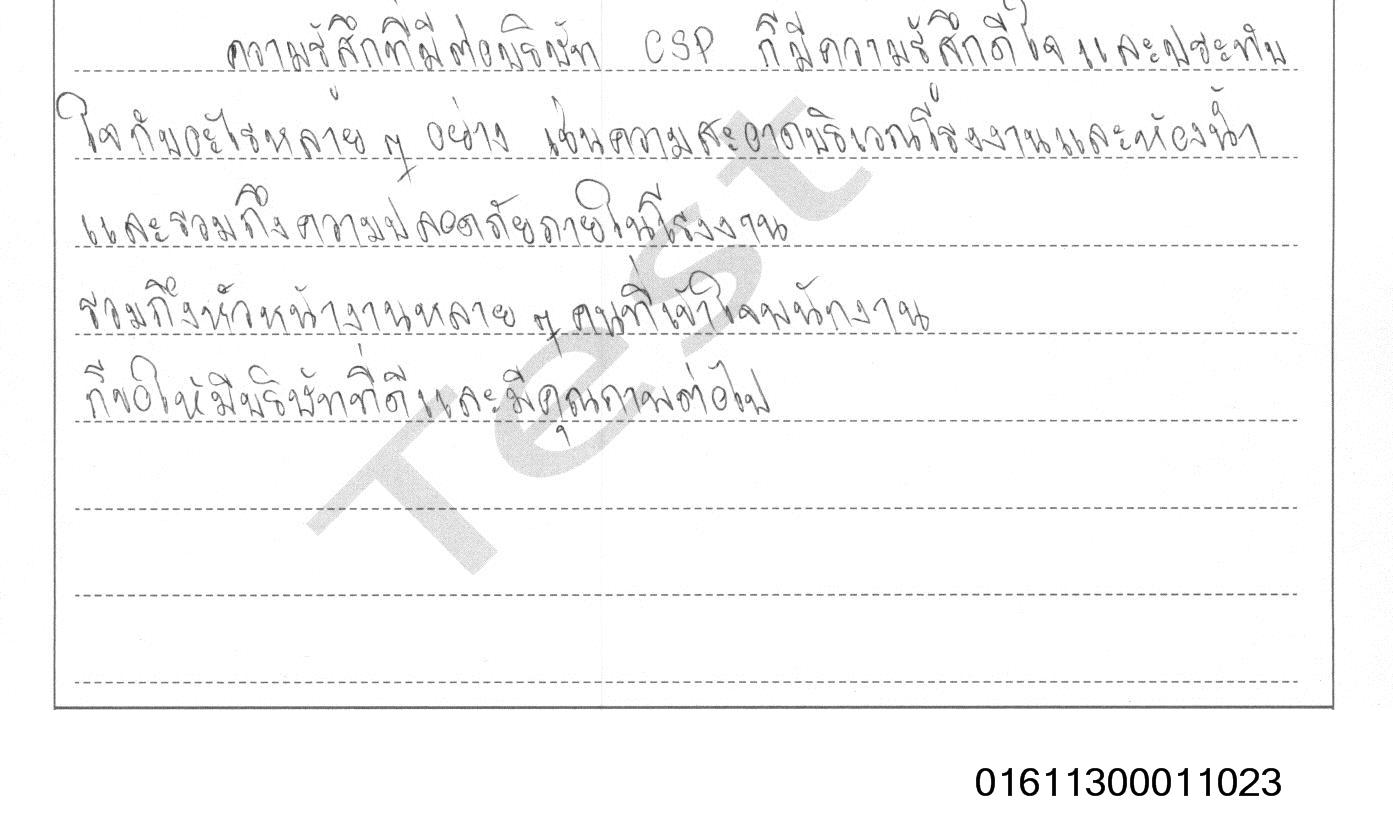 ความรู้สึกที่มีต่อบริษัท CSP ก็มีความรู้สึกดีใจและประทับ
ใจกับอะไรหลาย ๆ อย่าง เช่นความสะอาดบริเวณโรงงานและห้องน้ำ
และรวมถึงความปลอดภัยภายในโรงงาน
รวมถึงหัวหน้างานหลาย ๆ คนที่เข้าใจพนักงาน
ก็ขอให้มีบริษัทที่ดีและมีคุณภาพต่อไป
Test
01611300011023